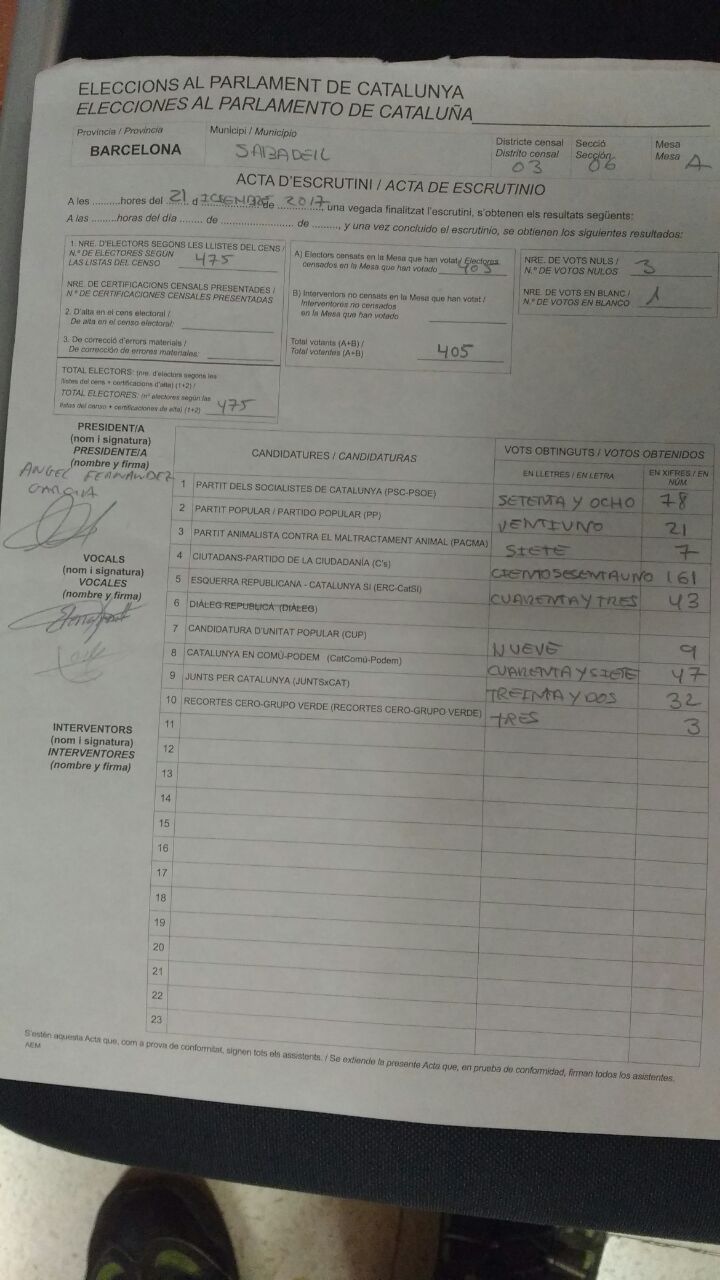 ELECCIONS AL PARLAMENT DE CATALUNYA
ELECCIONES AL PARLAMENTO DE CATALUÑA
Província / Provincia
BARCELONA
Municipi / Municipio
SABADELL
Districte censal
Distrito censal
03
Secció
Sección
06
Mesa
Mesa A
ACTA D'ESCRUTINI / ACTA DE ESCRUTINIO
A les .........hores del 21 d ICIEMBRE de 2017, una vegada finalitzat l'escrutini, s'obtenen els resultats següents:
A las .........horas del día ........ de ........................ de ........, y una vez concluido el escrutinio, se obtienen los siguientes resultados:
1. NRE. D'ELECTORS SEGONS LES LLISTES DEL CENS /
N.º DE ELECTORES SEGUN
LAS LISTAS DEL CENSO 475
NRE. DE CERTIFICACIONS CENSALS PRESENTADES /
N.º DE CERTIFICACIONES CENSALES PRESENTADAS
2. D'alta en el cens electoral /
De alta en el censo electoral:
3. De correcció d'errors materials /
De corrección de errores materiales:
TOTAL ELECTORS: (nre. d'electors segons les
llistes del cens + certificacions d'alta) (1+2) /
TOTAL ELECTORES: (nº electores según las
listas del censo + certificaciones de alta) (1+2) 475
A) Electors censats en la Mesa que han votat / Electores
censados en la Mesa que han votado 405
B) Interventors no censats en la Mesa que han votat /
Interventores no censados
en la Mesa que han votado
Total votants (A+B) /
Total votantes (A+B) 405
NRE. DE VOTS NULS /
N.º DE VOTOS NULOS 3
NRE. DE VOTS EN BLANC /
N.º DE VOTOS EN BLANCO 1
PRESIDENT/A
(nom i signatura)
PRESIDENTE/A
(nombre y firma)
ANGEL FERNANDEZ
GARCIA
VOCALS
(nom i signatura)
VOCALES
(nombre y firma)
INTERVENTORS
(nom i signatura)
INTERVENTORES
(nombre y firma)
CANDIDATURES / CANDIDATURAS
VOTS OBTINGUTS / VOTOS OBTENIDOS
EN LLETRES / EN LETRA
EN XIFRES / EN NÚM.
1 PARTIT DELS SOCIALISTES DE CATALUNYA (PSC-PSOE) SETENTA Y OCHO 78
2 PARTIT POPULAR / PARTIDO POPULAR (PP) VENTIUNO 21
3 PARTIT ANIMALISTA CONTRA EL MALTRACTAMENT ANIMAL (PACMA) SIETE 7
4 CIUTADANS-PARTIDO DE LA CIUDADANÍA (C's) CIENTOSESENTAUNO 161
5 ESQUERRA REPUBLICANA - CATALUNYA SÍ (ERC-CatSí) CUARENTA Y TRES 43
6 DIÀLEG REPUBLICÀ (DIÀLEG)
7 CANDIDATURA D'UNITAT POPULAR (CUP) NUEVE 9
8 CATALUNYA EN COMÚ-PODEM (CatComú-Podem) CUARENTA Y SIETE 47
9 JUNTS PER CATALUNYA (JUNTSxCAT) TREINTA Y DOS 32
10 RECORTES CERO-GRUPO VERDE (RECORTES CERO-GRUPO VERDE) TRES 3
11
12
13
14
15
16
17
18
19
20
21
22
23
S'estén aquesta Acta que, com a prova de conformitat, signen tots els assistents. / Se extiende la presente Acta que, en prueba de conformidad, firman todos los asistentes.
AEM